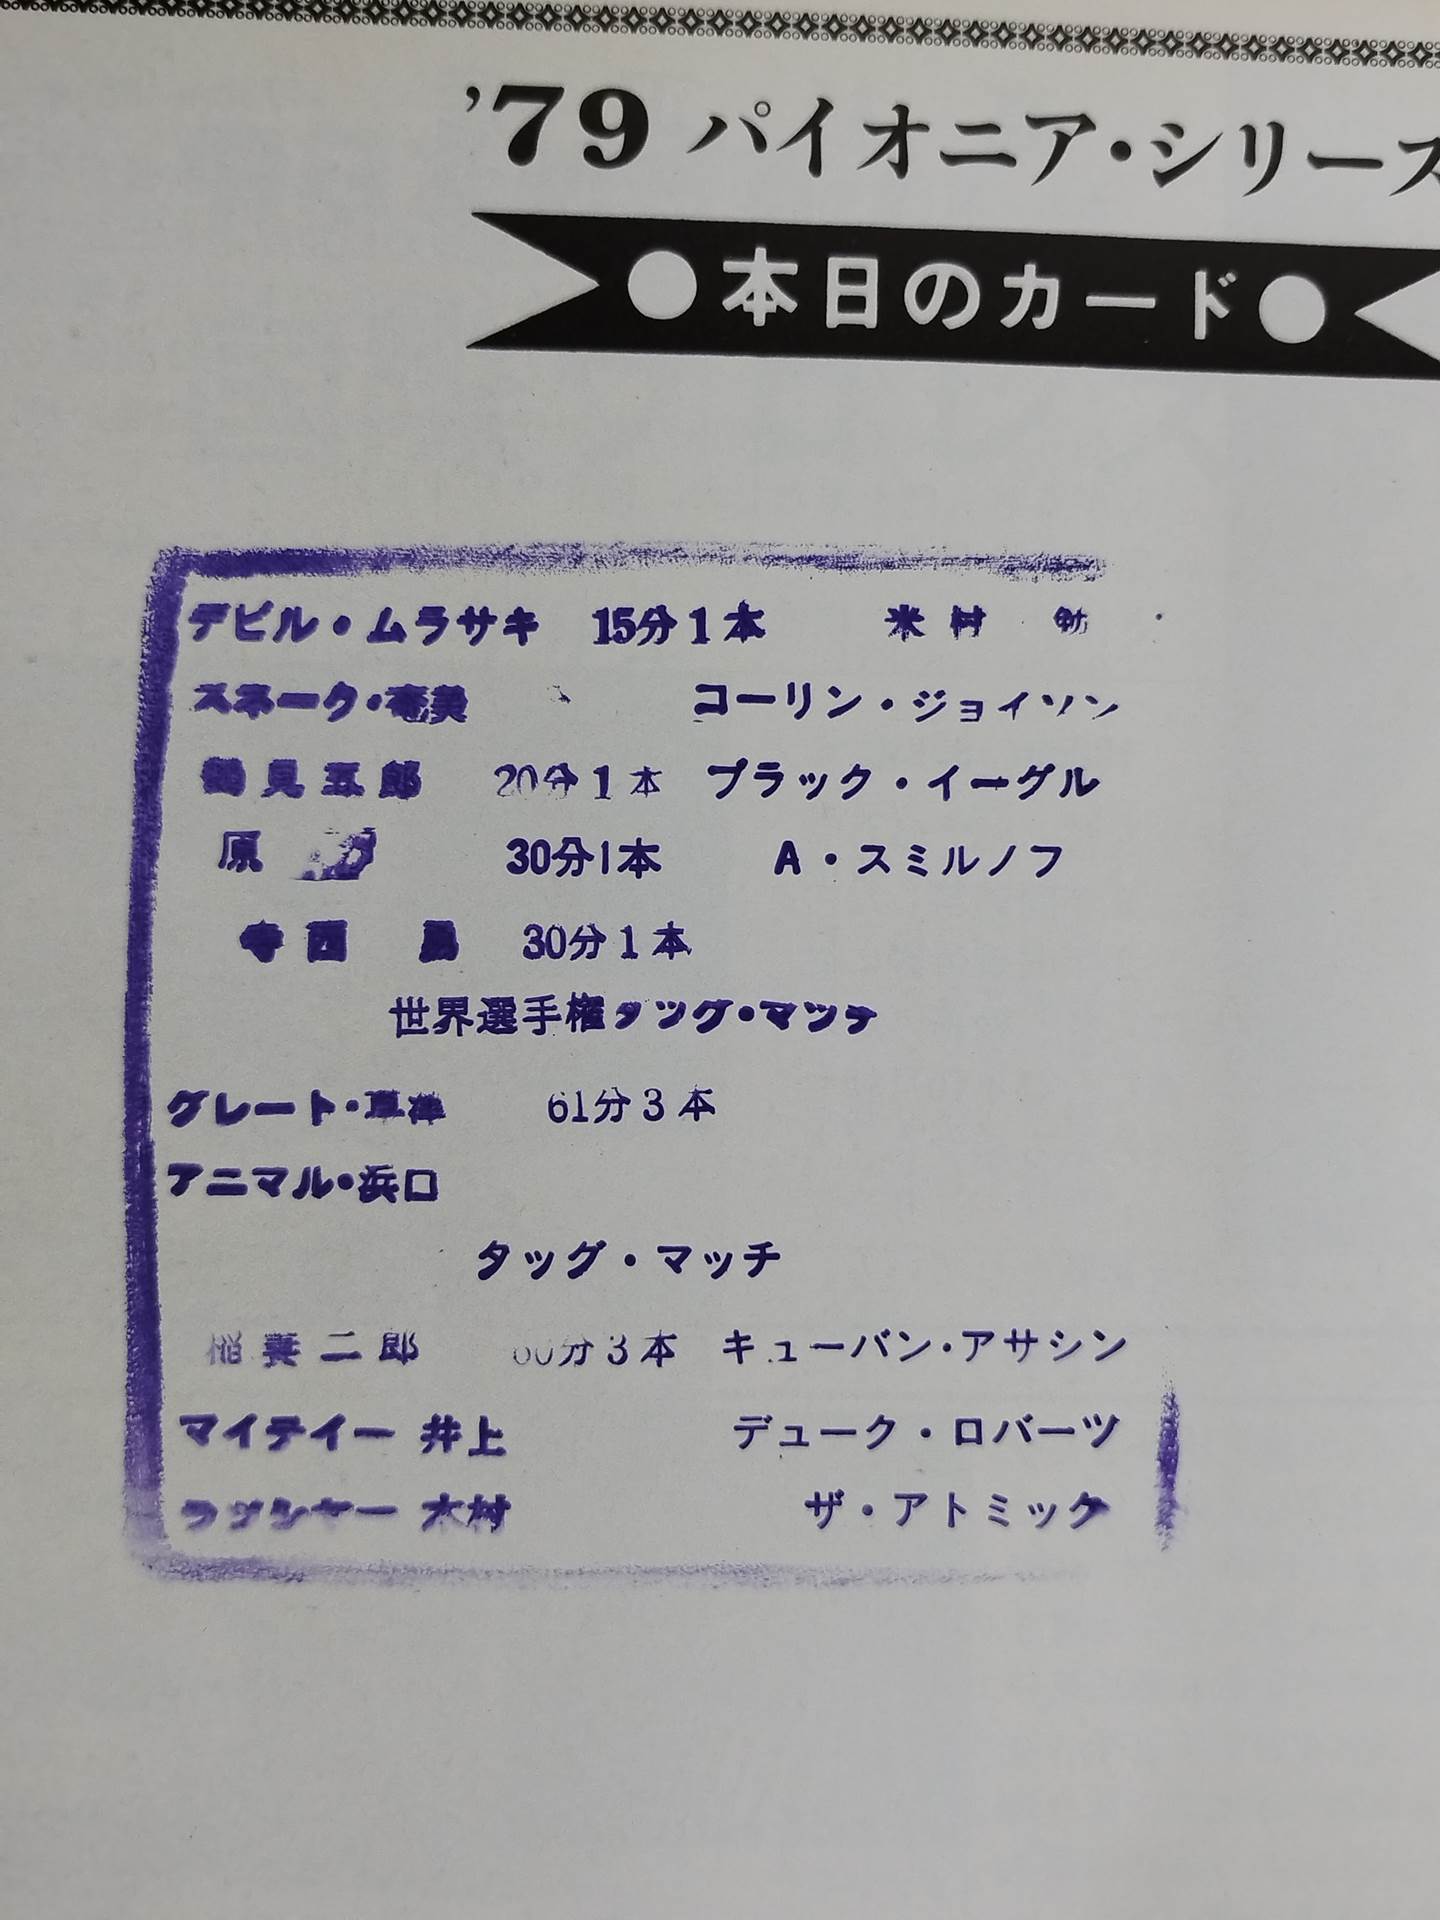 '79 パイオニア・シリーズ
●本日のカード●
デビル・ムラサキ 15分1本 米村 勉
スネーク・奄美 コーリン・ジョイソン
鶴見五郎 20分1本 ブラック・イーグル
原 30分1本 A・スミルノフ
寺西 勇 30分1本
世界選手権タッグ・マッチ
グレート・草津 61分3本
アニマル・浜口
タッグ・マッチ
稲妻二郎 60分3本 キューバン・アサシン
マイティー 井上 デューク・ロバーツ
ラッシャー 木村 ザ・アトミック